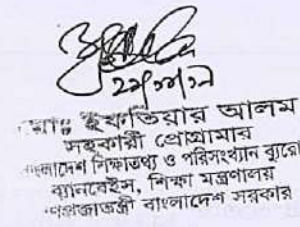 মোঃ ইফতিয়ার আলম
সহকারী প্রোগ্রামার
বাংলাদেশ শিক্ষাতথ্য ও পরিসংখ্যান ব্যুরো
ব্যানবেইস, শিক্ষা মন্ত্রণালয়
গণপ্রজাতন্ত্রী বাংলাদেশ সরকার